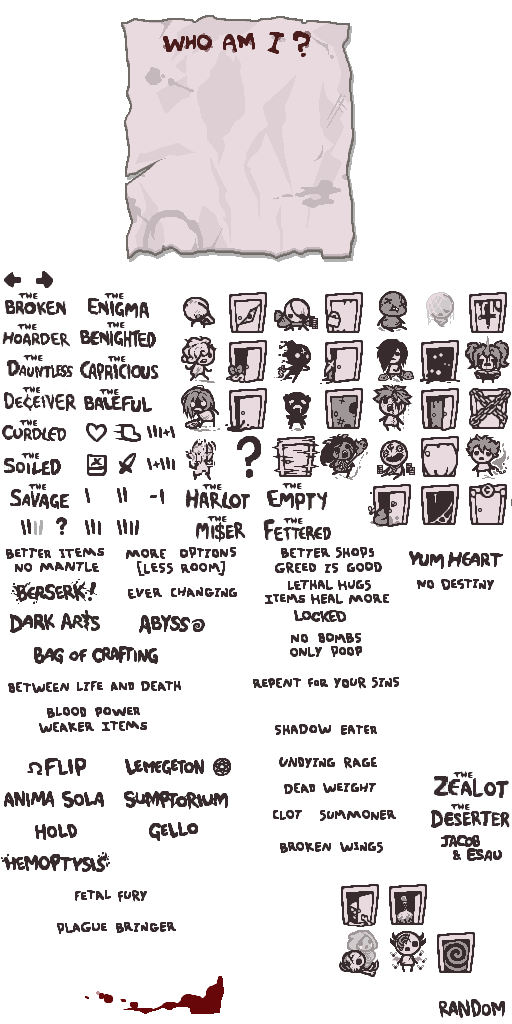 WHO AM I ?
THE BROKEN
THE ENIGMA
THE HOARDER
THE BENIGHTED
THE DAUNTLESS
THE CAPRICIOUS
THE DECEIVER
THE BALEFUL
THE CURDLED
THE SOILED
?
THE SAVAGE
THE HARLOT
THE EMPTY
?
THE MI$ER
THE FETTERED
BETTER ITEMS
NO MANTLE
MORE OPTIONS
[LESS ROOM]
BETTER SHOPS
GREED IS GOOD
YUM HEART
BERSERK!
EVER CHANGING
LETHAL HUGS
ITEMS HEAL MORE
NO DESTINY
DARK ARTS
ABYSS
LOCKED
BAG OF CRAFTING
NO BOMBS
ONLY POOP
BETWEEN LIFE AND DEATH
REPENT FOR YOUR SINS
BLOOD POWER
WEAKER ITEMS
SHADOW EATER
FLIP
LEMEGETON
UNDYING RAGE
ANIMA SOLA
SUMPTORIUM
DEAD WEIGHT
THE ZEALOT
HOLD
GELLO
CLOT SUMMONER
THE DESERTER
HEMOPTYSIS
BROKEN WINGS
JACOB
& ESAU
FETAL FURY
PLAGUE BRINGER
RANDOM